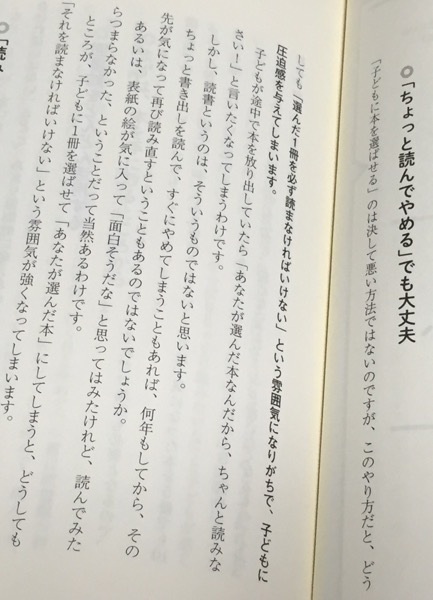 「ちょっと読んでやめる」でも大丈夫
「子どもに本を選ばせる」のは決して悪い方法ではないのですが、このやり方だと、どう
しても「選んだ1冊を必ず読まなければいけない」という雰囲気になりがちで、子どもに
圧迫感を与えてしまいます。
子どもが途中で本を放り出していたら「あなたが選んだ本なんだから、ちゃんと読みな
さい！」と言いたくなってしまうわけです。
しかし、読書というのは、そういうものではないと思います。
ちょっと書き出しを読んで、すぐにやめてしまうこともあれば、何年もしてから、その
先が気になって再び読み直すということもあるのではないでしょうか。
あるいは、表紙の絵が気に入って「面白そうだな」と思ってはみたけれど、読んでみた
らつまらなかった、ということだって当然あるわけです。
ところが、子どもに1冊を選ばせて「あなたが選んだ本」にしてしまうと、どうしても
「それを読まなければいけない」という雰囲気が強くなってしまいます。